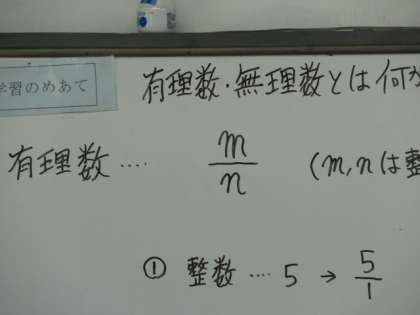 学習のめあて
有理数・無理数とは何か
有理数‥‥ m/n (m,nは整
① 整数‥‥5→5/1